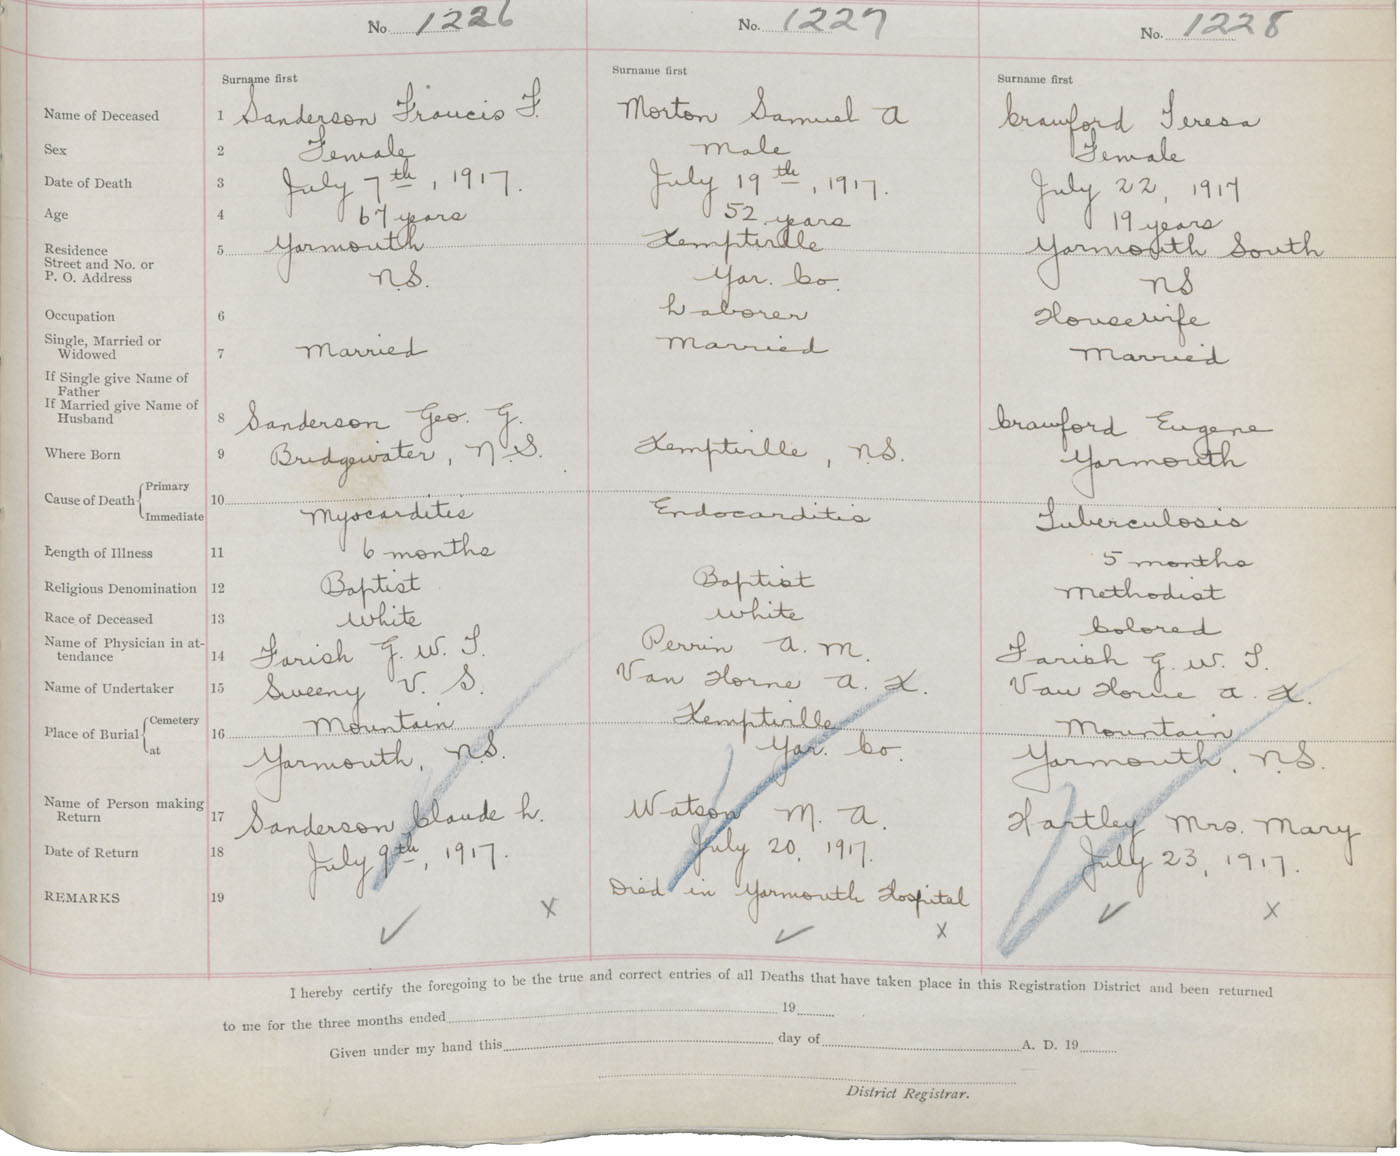 No. 1226 No. 1227 No. 1228
Surname first Surname first Surname first
Name of Deceased 1 Sanderson Francis F. Morton Samuel A Crawford Teresa
Sex 2 Female Male Female
Date of Death 3 July 7th, 1917. July 19th, 1917. July 22, 1917
Age 4 67 years 52 years 19 years
Residence 5 Yarmouth Kemptville Yarmouth South
Street and No. or
P. O. Address N.S. Yar. Co. NS
Occupation 6 Laborer Housewife
Single, Married or
Widowed 7 Married Married Married
If Single give Name of
Father
If Married give Name of
Husband 8 Sanderson Geo. G. Crawford Eugene
Where Born 9 Bridgewater, N.S. Kemptville, N.S. Yarmouth
Cause of Death { Primary
10
Immediate Myocarditis Endocarditis Tuberculosis
Length of Illness 11 6 months 5 months
Religious Denomination 12 Baptist Baptist Methodist
Race of Deceased 13 White White Colored
Name of Physician in at-
tendance 14 Farish G. W. T. Perrin A. M. Farish G. W. T.
Name of Undertaker 15 Sweeny V. S. Van Horne A. K. Van Horne A. K.
Place of Burial { Cemetery 16 Mountain Kemptville Mountain
at Yarmouth, N.S. Yar. Co. Yarmouth, N.S.
Name of Person making
Return 17 Sanderson Claude L. Watson M. A. Hartley Mrs. Mary
Date of Return 18 July 9th, 1917. July 20, 1917. July 23, 1917.
REMARKS 19 Died in Yarmouth Hospital
x x x
I hereby certify the foregoing to be the true and correct entries of all Deaths that have taken place in this Registration District and been returned
to me for the three months ended 19
Given under my hand this day of A. D. 19
District Registrar.